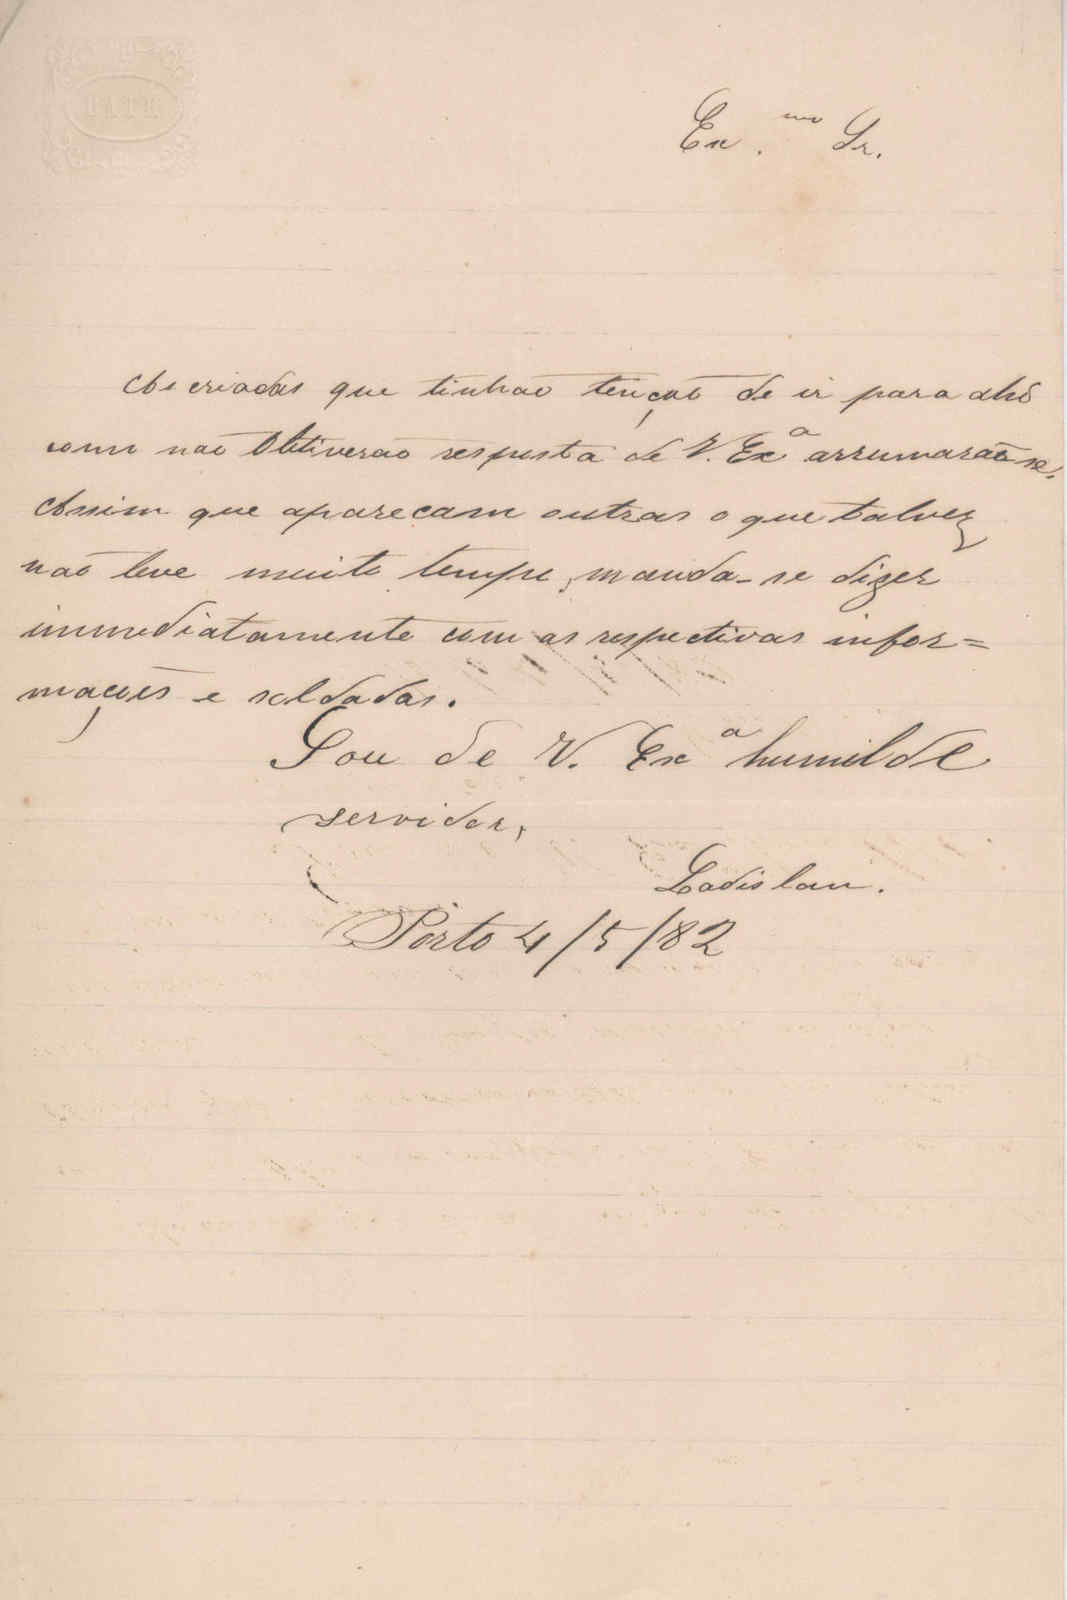 PATH
Ex.mo Sr.
As criadas que tinhão tenção de ir para ahi
como não Obtiverão resposta de V. Exa arrumarão-se.
Assim que apareçam outras o que talvez
não leve muito tempo, manda-se dizer
immediatamente com as respectivas infor=
mações e soldadas.
Sou de V. Exa humilde
servidor,
Ladislau.
Porto 4/5/82